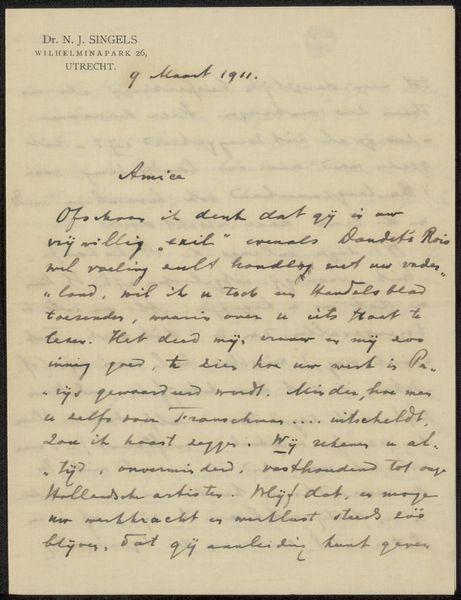 Dr. N. J. SINGELS
WILHELMINAPARK 26,
UTRECHT.
9 Maart 1911.
Amice
Ofschoon ik denk dat gij in uw
vrijwillig „exil" evenals Daudet's Rois
wel voeling zult houden met uw vader-
„land, wil ik u toch een Handelsblad
toezenden, waarin over u iets staat te
lezen. Het deed mijn vrouw en mij zoo
innig goed, te zien hoe uw werk in Pa-
„rijs gewaardeerd wordt. Minder, hoe men
u zelfs voor Franschman .... uitscheldt,
zou ik haast zeggen. Wij rekenen u al-
„tijd, onverminderd, vasthoudend tot onze
Hollandsche artisten. Blijf dat, en moge
uw werkkracht en werklust steeds zóó
blijven, dat gij aanleiding kunt geven